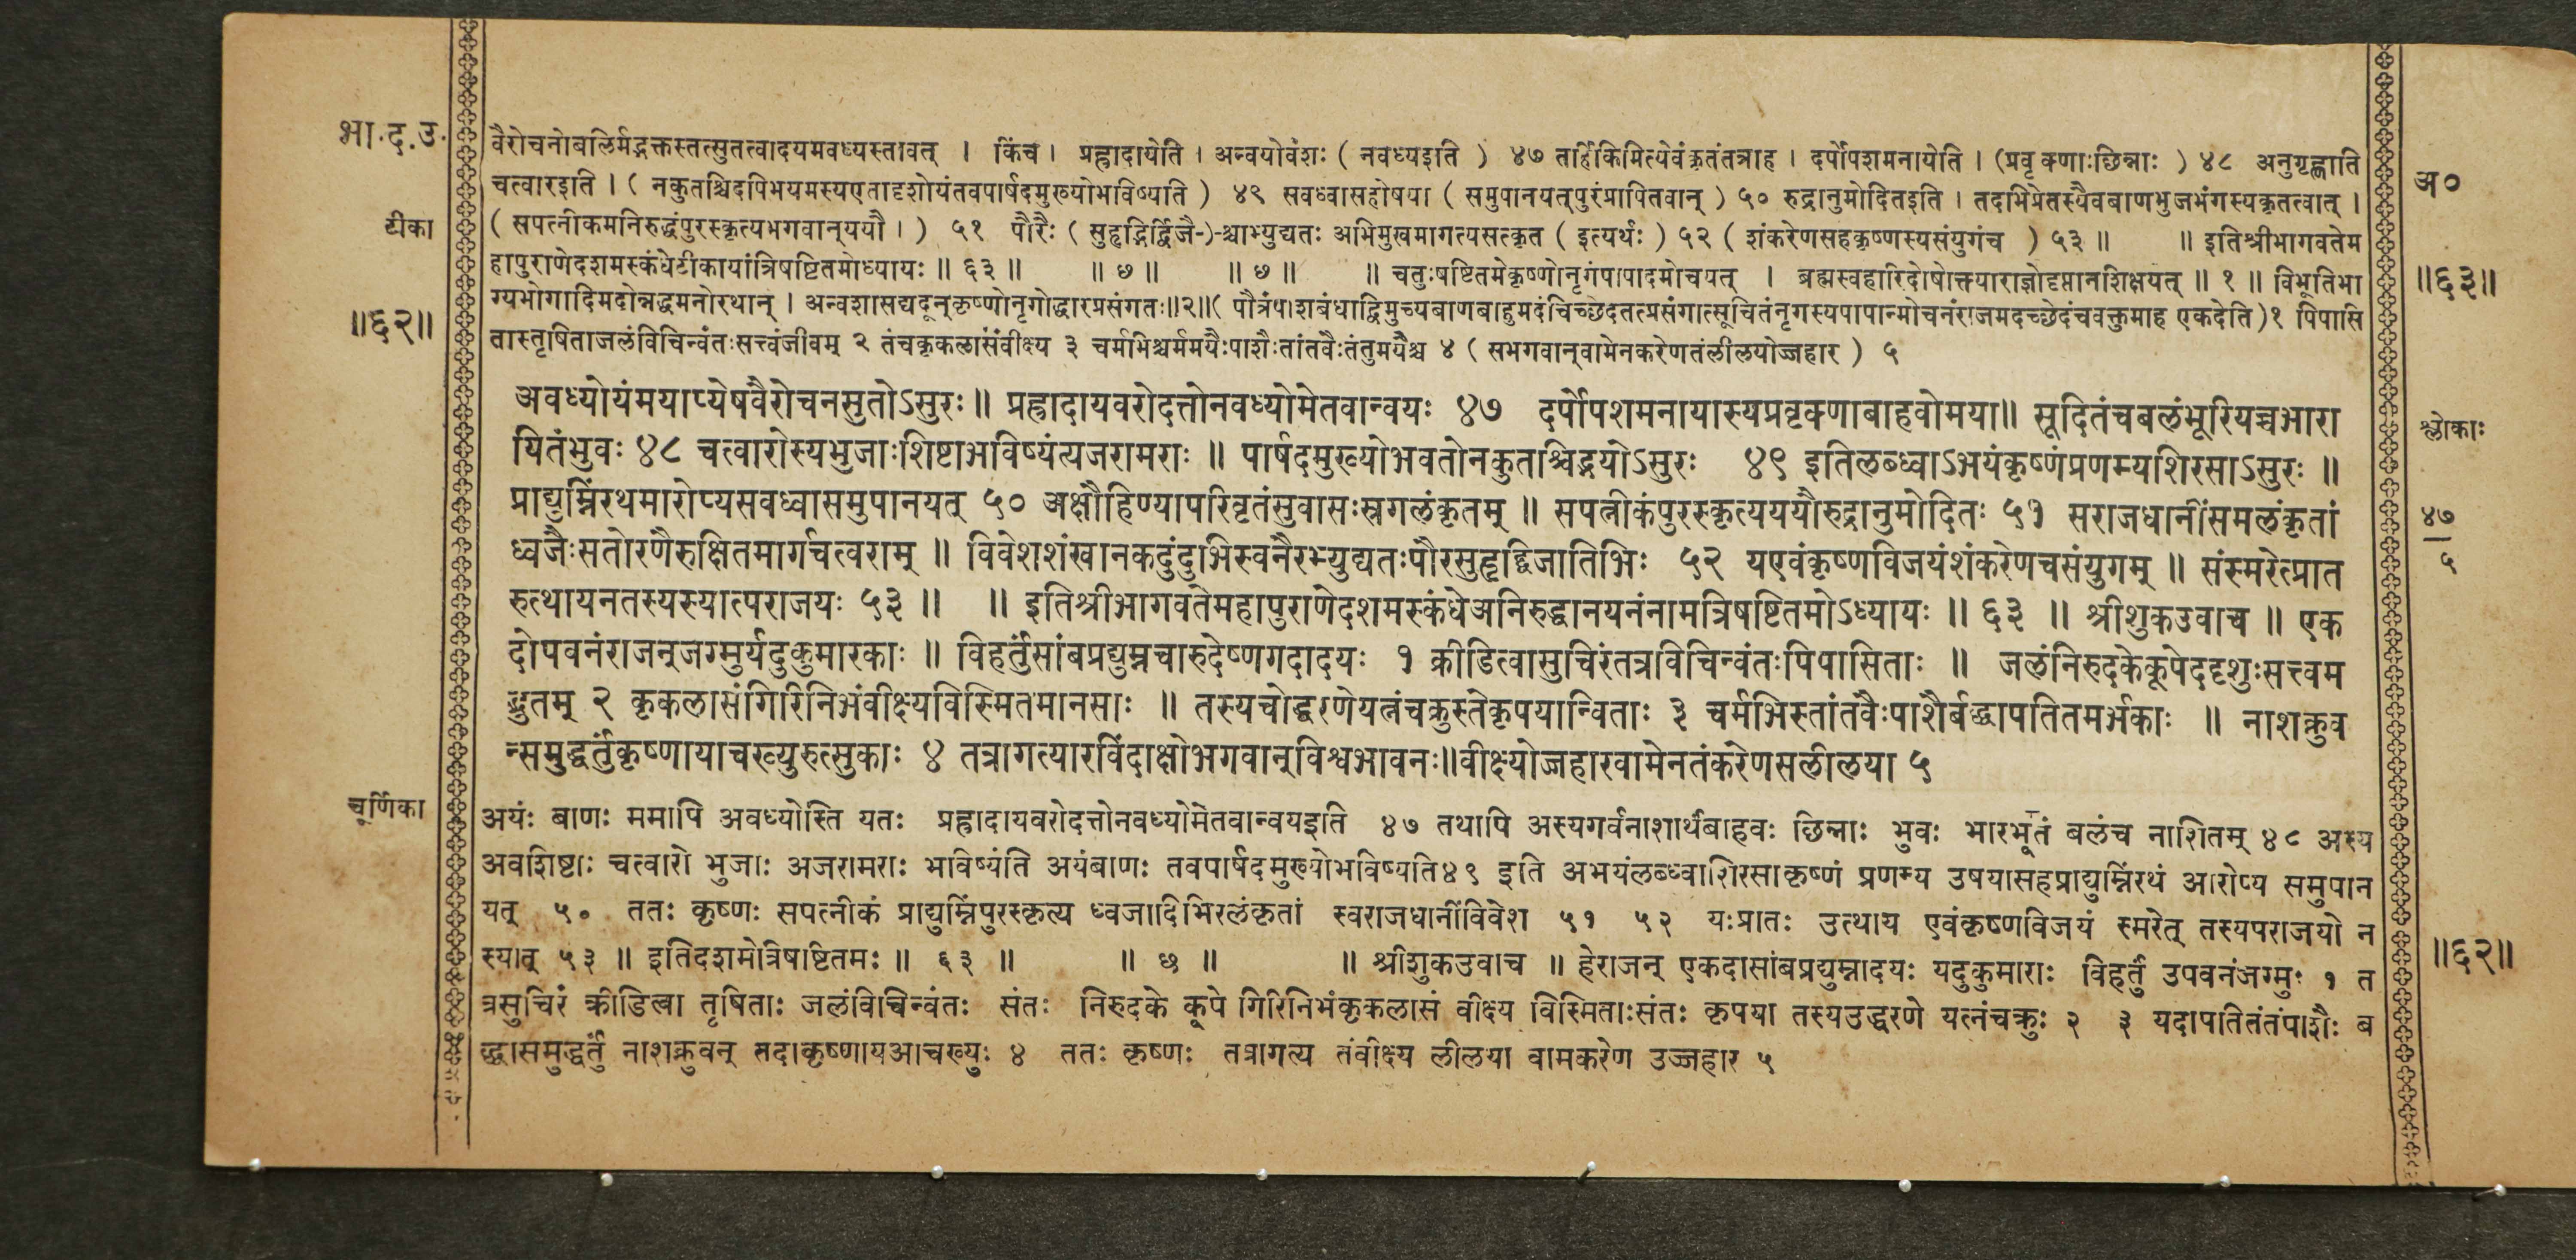 भा.द.उ.
वैरोचनोबलिर्मद्भक्तस्तत्सुतत्वादयमवध्यस्तावत् । किंच । प्रह्लादायेति । अन्वयोवंशः ( नवध्यइति ) ४७ तर्हिकिमित्येवंकृतंतत्राह । दर्पोपशमनायेति । (प्रवृक्णाःछिन्नाः ) ४८ अनुगृह्णाति
चत्वारइति । ( नकुतश्चिदपिभयमस्यएतादृशोयंतवपार्षदमुख्योभविष्यति ) ४९ सवध्वासहोषया ( समुपानयत्पुरंप्रापितवान् ) ५० रुद्रानुमोदितइति । तदभिप्रेतस्यैवबाणभुजभंगस्यकृतत्वात् ।
अ०
टीका
( सपत्नीकमनिरुद्धंपुरस्कृत्यभगवान्ययौ । ) ५१ पौरैः ( सुहृद्भिर्द्विजै-)-श्चाभ्युद्यतः अभिमुखमागत्यसत्कृत ( इत्यर्थः ) ५२ ( शंकरेणसहकृष्णस्यसंयुगंच ) ५३ ॥ ॥ इतिश्रीभागवतेम
हापुराणेदशमस्कंधेटीकायांत्रिषष्टितमोध्यायः ॥ ६३ ॥ ॥ ७ ॥ ॥ ७ ॥ ॥ चतुःषष्टितमेकृष्णोनृगंपापादमोचयत् । ब्रह्मस्वहारिदोषोक्त्याराज्ञोदृप्तानशिक्षयत् ॥ १ ॥ विभूतिभा
॥६३॥
ग्यभोगादिमदोन्नद्धमनोरथान् । अन्वशासद्यदून्कृष्णोनृगोद्धारप्रसंगतः॥२॥( पौत्रंपाशबंधाद्विमुच्यबाणबाहुमदंचिच्छेदतत्प्रसंगात्सूचितंनृगस्यपापान्मोचनंराजमदच्छेदंचवक्तुमाह एकदेति)१ पिपासि
॥६२॥
तास्तृषिताजलंविचिन्वंतःसत्त्वंजीवम् २ तंचकृकलासंवीक्ष्य ३ चर्मभिश्चर्ममयैःपाशैःतांतवैःतंतुमयैश्च ४ ( सभगवान्वामेनकरेणतंलीलयोज्जहार ) ५
अवध्योयंमयाप्येषवैरोचनसुतोऽसुरः॥ प्रह्लादायवरोदत्तोनवध्योमेतवान्वयः ४७ दर्पोपशमनायास्यप्रवृक्णाबाहवोमया॥ सूदितंचबलंभूरियच्चभारा
श्लोकाः
यितंभुवः ४८ चत्वारोस्यभुजाःशिष्टाभविष्यंत्यजरामराः ॥ पार्षदमुख्योभवतोनकुतश्चिद्भयोऽसुरः ४९ इतिलब्ध्वाऽभयंकृष्णंप्रणम्यशिरसाऽसुरः ॥
प्राद्युम्निंरथमारोप्यसवध्वासमुपानयत् ५० अक्षौहिण्यापरिवृतंसुवासःस्रगलंकृतम् ॥ सपत्नीकंपुरस्कृत्यययौरुद्रानुमोदितः ५१ सराजधानींसमलंकृतां
४७
ध्वजैःसतोरणैरुक्षितमार्गचत्वराम् ॥ विवेशशंखानकदुंदुभिस्वनैरभ्युद्यतःपौरसुहृद्द्विजातिभिः ५२ यएवंकृष्णविजयंशंकरेणचसंयुगम् ॥ संस्मरेत्प्रात
५
रुत्थायनतस्यस्यात्पराजयः ५३ ॥ ॥ इतिश्रीभागवतेमहापुराणेदशमस्कंधेअनिरुद्धानयनंनामत्रिषष्टितमोऽध्यायः ॥ ६३ ॥ श्रीशुकउवाच ॥ एक
दोपवनंराजन्जग्मुर्यदुकुमारकाः ॥ विहर्तुंसांबप्रद्युम्नचारुदेष्णगदादयः १ क्रीडित्वासुचिरंतत्रविचिन्वंतःपिपासिताः ॥ जलंनिरुदकेकूपेददृशुःसत्त्वम
द्भुतम् २ कृकलासंगिरिनिभंवीक्ष्यविस्मितमानसाः ॥ तस्यचोद्धरणेयत्नंचक्रुस्तेकृपयान्विताः ३ चर्मभिस्तांतवैःपाशैर्बद्ध्वापतितमर्भकाः ॥ नाशक्नुव
न्समुद्धर्तुंकृष्णायाचख्युरुत्सुकाः ४ तत्रागत्यारविंदाक्षोभगवान्विश्वभावनः॥वीक्ष्योज्जहारवामेनतंकरेणसलीलया ५
चूर्णिका
अयंः बाणः ममापि अवध्योस्ति यतः प्रह्लादायवरोदत्तोनवध्योमेतवान्वयइति ४७ तथापि अस्यगर्वनाशार्थंबाहवः छिन्नाः भुवः भारभूतं बलंच नाशितम् ४८ अस्य
अवशिष्टाः चत्वारो भुजाः अजरामराः भविष्यंति अयंबाणः तवपार्षदमुख्योभविष्यति४९ इति अभयंलब्ध्वाशिरसाकृष्णं प्रणम्य उषयासहप्राद्युम्निंरथं आरोप्य समुपान
यत् ५० ततः कृष्णः सपत्नीकं प्राद्युम्निंपुरस्कृत्य ध्वजादिभिरलंकृतां स्वराजधानींविवेश ५१ ५२ यःप्रातः उत्थाय एवंकृष्णविजयं स्मरेत् तस्यपराजयो न
स्यात् ५३ ॥ इतिदशमोत्रिषष्टितमः ॥ ६३ ॥ ॥ छ ॥ ॥ श्रीशुकउवाच ॥ हेराजन् एकदासांबप्रद्युम्नादयः यदुकुमाराः विहर्तुं उपवनंजग्मुः १ त
॥६२॥
त्रसुचिरं क्रीडित्वा तृषिताः जलंविचिन्वंतः संतः निरुदके कूपे गिरिनिभंकृकलासं वीक्ष्य विस्मिताःसंतः कृपया तस्यउद्धरणे यत्नंचक्रुः २ ३ यदापतितंतंपाशैः ब
द्ध्वासमुद्धर्तुं नाशक्नुवन् तदाकृष्णायआचख्युः ४ ततः कृष्णः तत्रागत्य तंवीक्ष्य लीलया वामकरेण उज्जहार ५